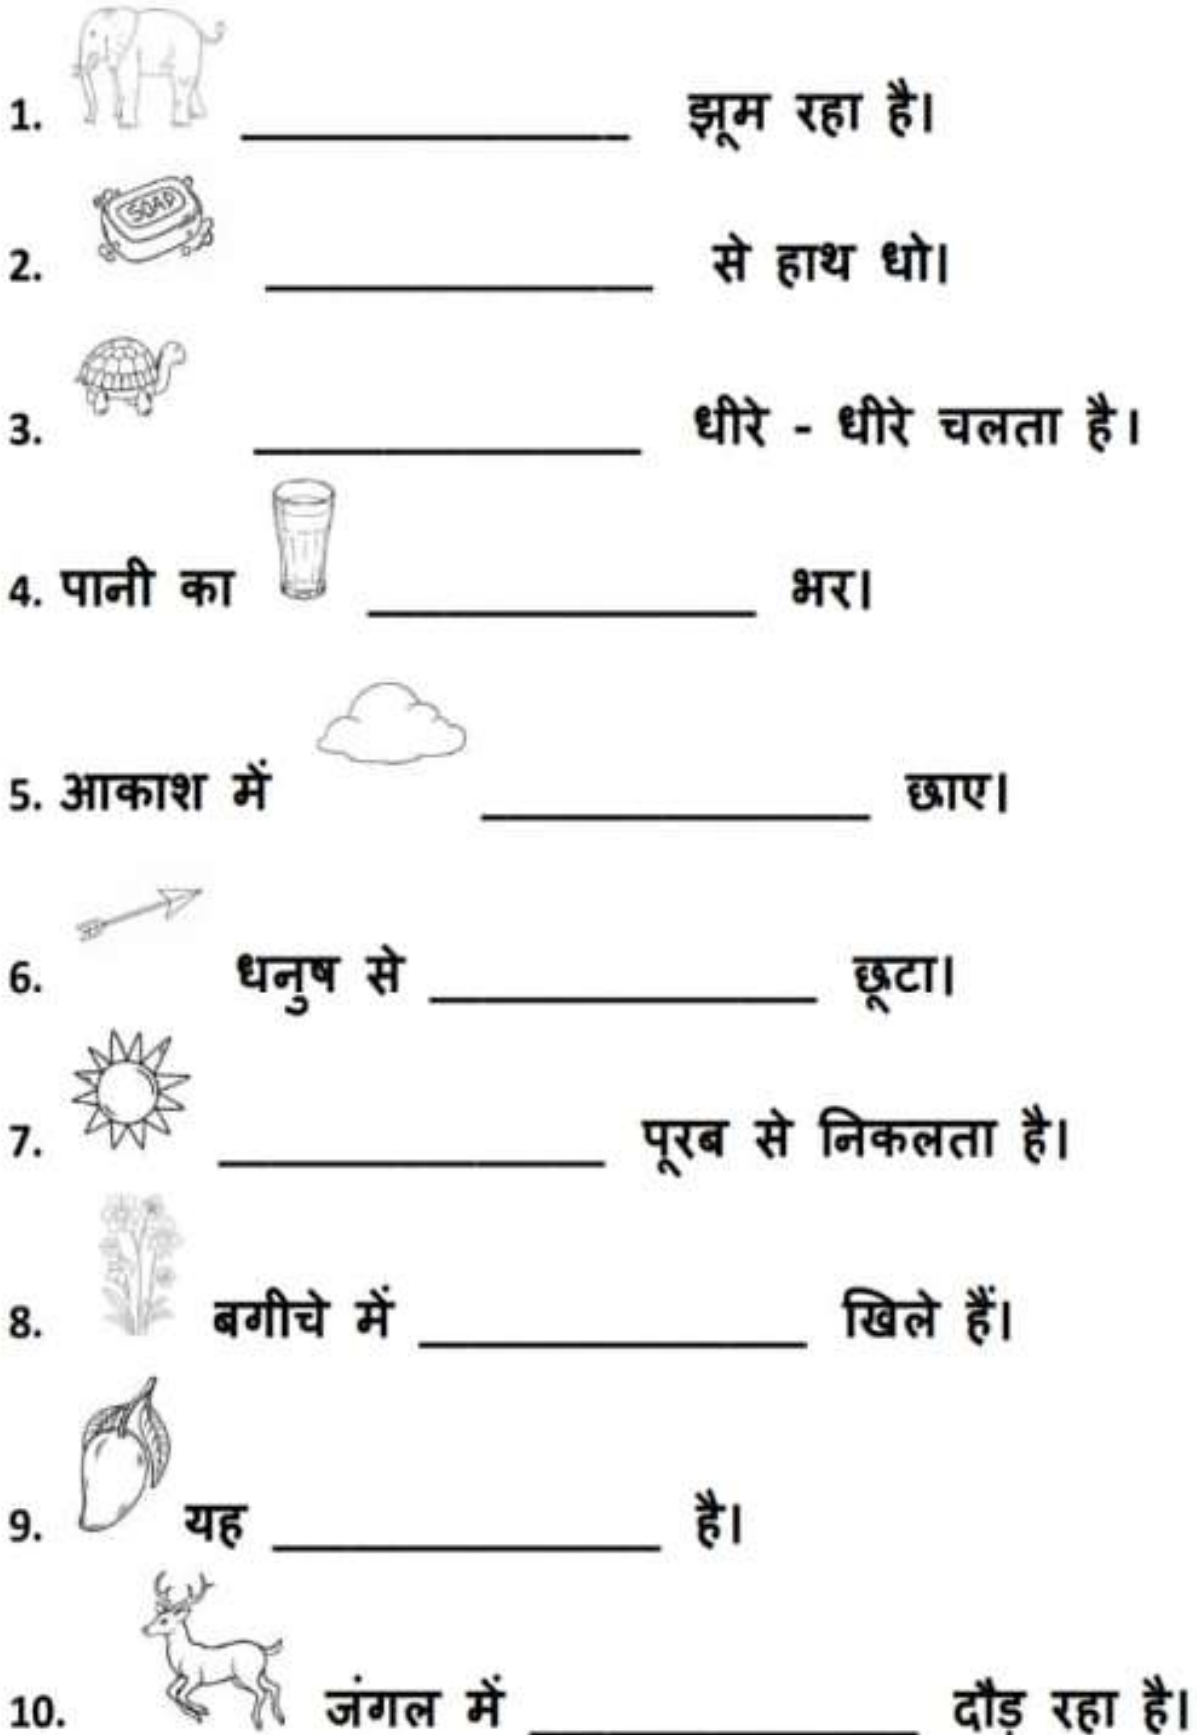 1. ____________ झूम रहा है।
SOAP
2. ____________ से हाथ धो।
3. ____________ धीरे - धीरे चलता है।
4. पानी का ____________ भर।
5. आकाश में ____________ छाए।
6. धनुष से ____________ छूटा।
7. ____________ पूरब से निकलता है।
8. बगीचे में ____________ खिले हैं।
9. यह ____________ है।
10. जंगल में ____________ दौड़ रहा है।